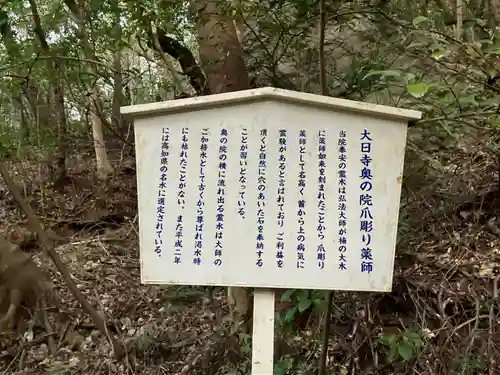 大日寺奥の院爪彫り薬師
当院奉安の霊木は弘法大師が楠の大木
に薬師如来を刻まれたことから 爪彫り
薬師として名高く 首から上の病気に
霊験があると言われており ご利益を
頂くと自然に穴のあいた石を奉納する
ことが習いとなっている。
奥の院の横に流れ出る霊水は大師の
ご加持水として古くから尊ばれ渇水時
にも枯れたことがない。また平成二年
には高知県の名水に選定されている。